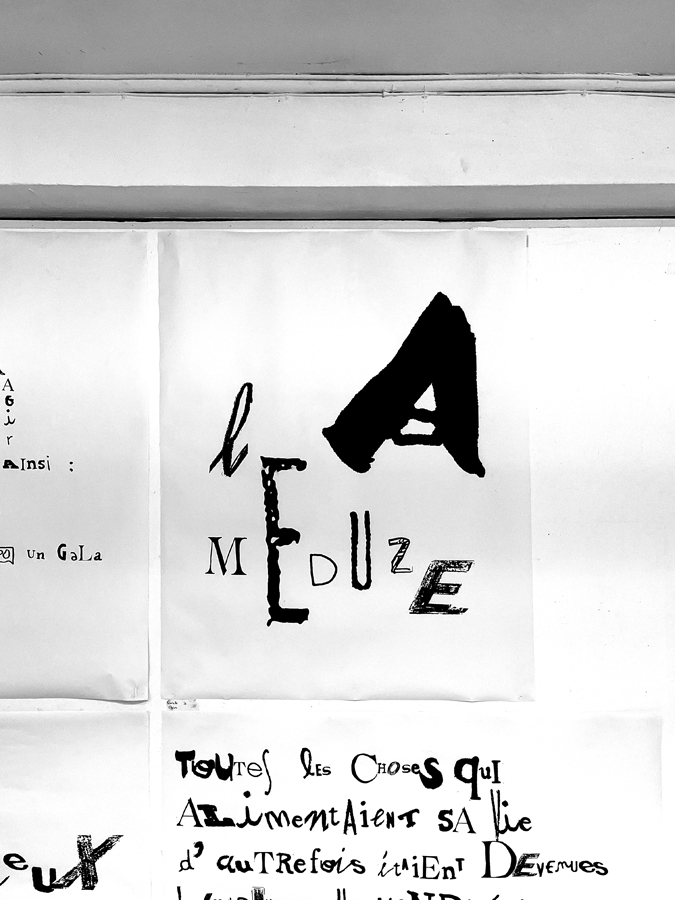 A
G
i
r
AInsi :
un GaLa
lA
MEDUZE
TOUTes les CHOSeS quI
ALimentAient SA Vie
d' auTRefois étAiEnT DEvenues
eUX